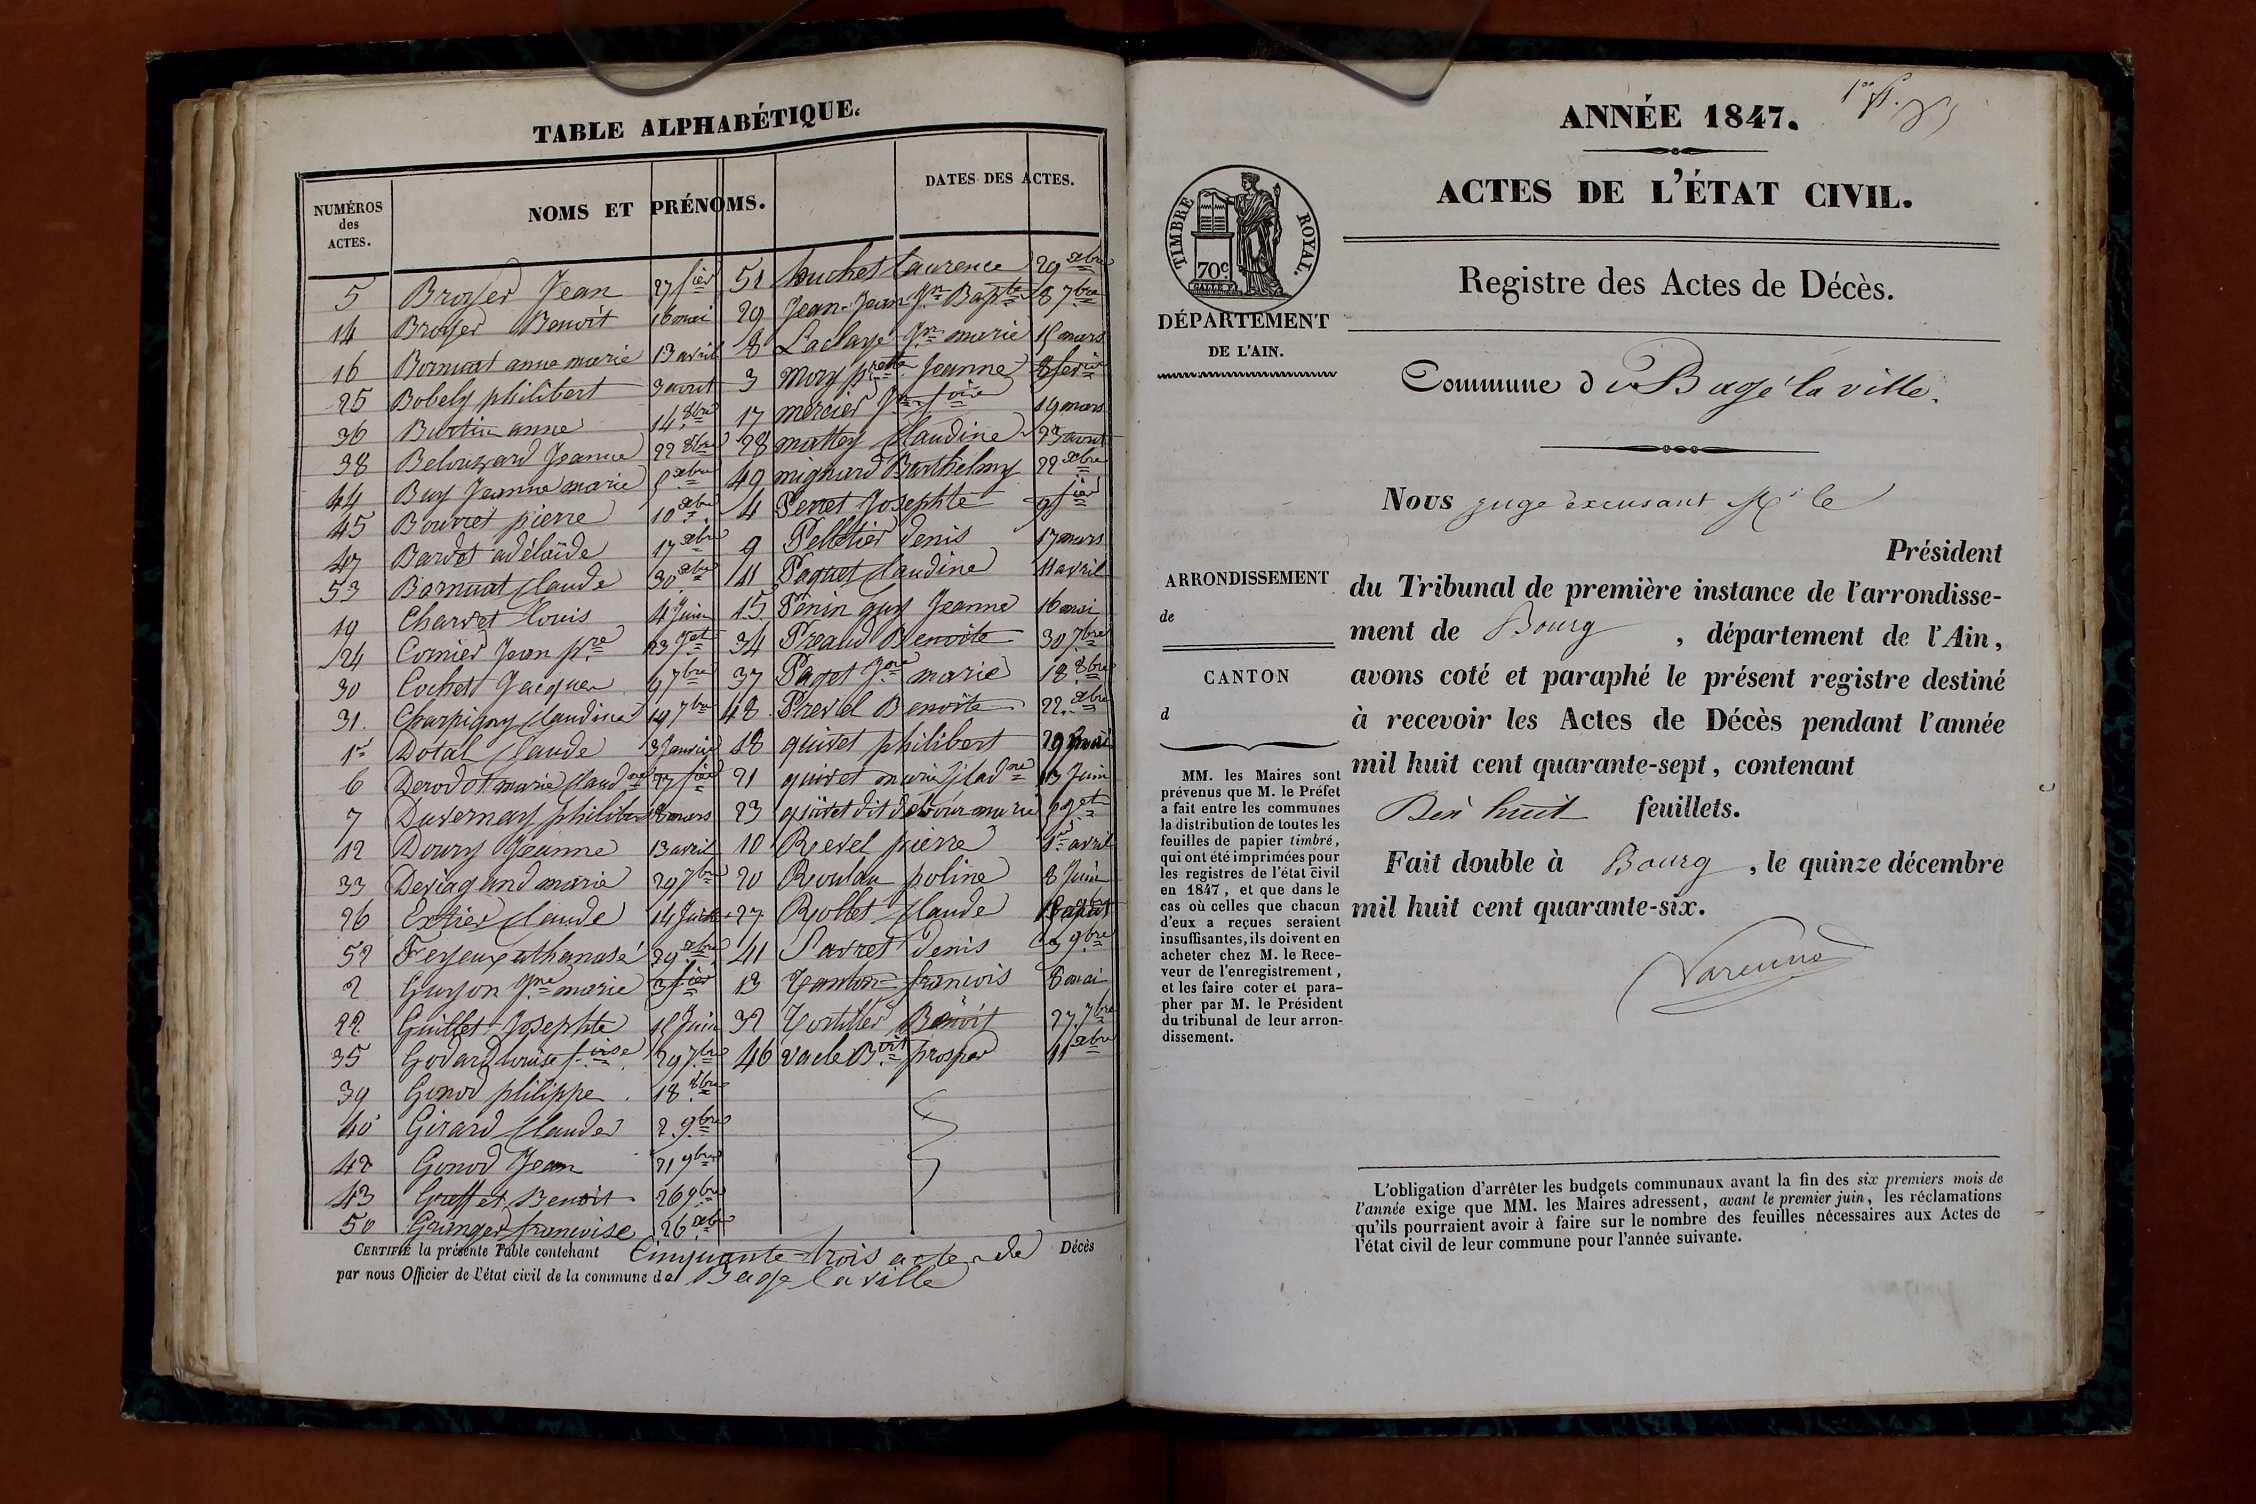 TABLE ALPHABÉTIQUE.
NUMÉROS des ACTES. NOMS ET PRÉNOMS. DATES DES ACTES.
5 Broyer Jean 27 fier
14 Broyer Benoit 10 mai
16 Bornuat anne marie 13 avril
25 Bobely philibert 3 aout
36 Burtin anne 14 8bre
38 Belouzard Jeanne 22 8bre
44 Buy Jeanne marie 5 xbre
45 Bouvret pierre 10 xbre
47 Bardet adélaïde 17 xbre
53 Barnuat Claude 30 xbre
19 Charvet Louis 4 Juin
24 Cornier Jean pre 23 Jet
30 Cochet Jacques 9 7bre
31 Charpigny Claudine 14 7bre
1er Dotal Claude 3 Janvier
6 Derodot marie Claudne 27 fier
7 Duvernay philibert 8 mars
12 Doury Jeanne 13 avril
33 Deriagand marie 29 7bre
26 Extier Claude 14
52 Feyeux athanase 29 xbre
2 Guyon Jne marie 3 fier
22 Guillet Josephte 15 Juin
35 Godard Louise foise 29 7bre
39 Gonod philippe 18 8bre
40 Girard Claude 2 9bre
42 Gonod Jean 21 9bre
43 Greffet Benoit 26 9bre
50 Granger francoise 26 xbre
51 huchet Laurence 29 xbre
29 Jean-Jean Jn Bapte 8 7bre
8 Laclaye Jne marie 15 mars
3 Mory prette Jeanne 8 fevier
17 mercier Jn foise 19 mars
28 mattey Claudine 23 aout
49 mignard Barthélmy 22 xbre
4 Perret Josephte 9 fier
9 Pelletier Denis 17 mars
11 Paquet Claudine 11 avril
15 Penin guy Jeanne 16 mai
34 Preaud Benoite 30 7bre
37 Paget Jne marie 18 8bre
48 Prevel Benoîte 22 xbre
18 quivet philibert 29 mai
21 quivet marie Cladne 13 Juin
23 quivet dit delour marie 5 Jet
10 Revel pierre 1er avril
20 Roulau poline 8 Juin
27 Rollet Claude
41 Savret Denis 3 9bre
13 Tanton francois 8 mai
32 Tortiller Benoit 27 7bre
46 vacle Boit prosper 11 xbre
CERTIFIÉ la présente Table contenant Cinquante-trois actes de Décès
par nous Officier de l'état civil de la commune de Bage la ville
ANNÉE 1847.
ACTES DE L'ÉTAT CIVIL.
TIMBRE ROYAL.
70c
Registre des Actes de Décès.
DÉPARTEMENT
DE L'AIN.
Commune de Bagé la ville.
Nous juge excusant Mr le
Président
ARRONDISSEMENT
de
CANTON
d
du Tribunal de première instance de l'arrondisse-
ment de Bourg, département de l'Ain,
avons coté et paraphé le présent registre destiné
à recevoir les Actes de Décès pendant l'année
mil huit cent quarante-sept, contenant
Dix huit feuillets.
Fait double à Bourg, le quinze décembre
mil huit cent quarante-six.
Varenne
MM. les Maires sont
prévenus que M. le Préfet
a fait entre les communes
la distribution de toutes les
feuilles de papier timbré,
qui ont été imprimées pour
les registres de l'état civil
en 1847, et que dans le
cas où celles que chacun
d'eux a reçues seraient
insuffisantes, ils doivent en
acheter chez M. le Rece-
veur de l'enregistrement,
et les faire coter et para-
pher par M. le Président
du tribunal de leur arron-
dissement.
L'obligation d'arrêter les budgets communaux avant la fin des six premiers mois de
l'année exige que MM. les Maires adressent, avant le premier juin, les réclamations
qu'ils pourraient avoir à faire sur le nombre des feuilles nécessaires aux Actes de
l'état civil de leur commune pour l'année suivante.